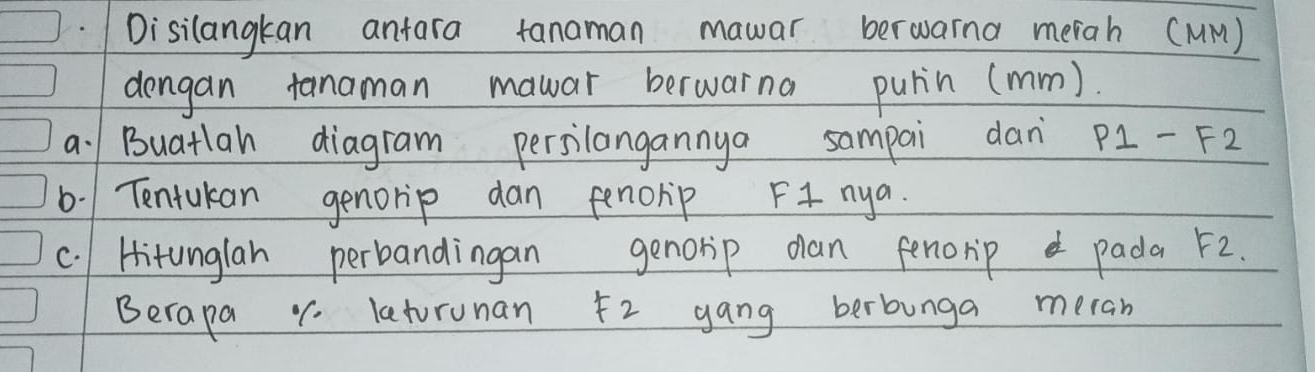 Disilangkan antara tanaman mawar berwarna merah (MM)
dengan tanaman mawar berwarna putih (mm).
a. Buatlah diagram persilangannya sampai dari P1 - F2
b. Tentukan genotip dan fenotip F1 nya.
c. Hitunglah perbandingan genotip dan fenotip pada F2.
Berapa % laturunan F2 yang berbunga merah